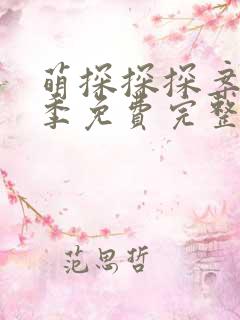 萌探探探案
季免費完整
范思哲